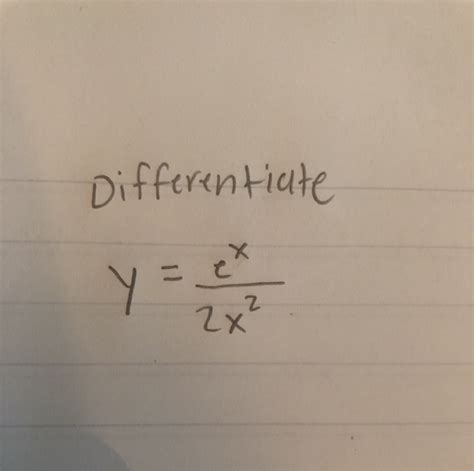 Differentiate
y = e^x / 2x^2